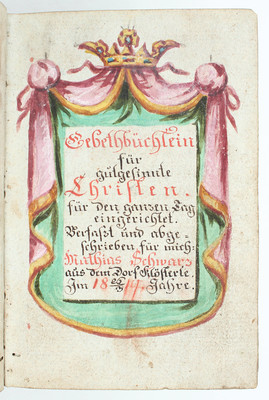 Gebethbüchlein
für
gutgesinnte
Christen.
für den ganzen Tag
eingerichtet.
Verfaßt und abge-
schrieben für mich:
Mathias Schwarz
aus dem Dorf Klösterle.
Im 18 Jahre.